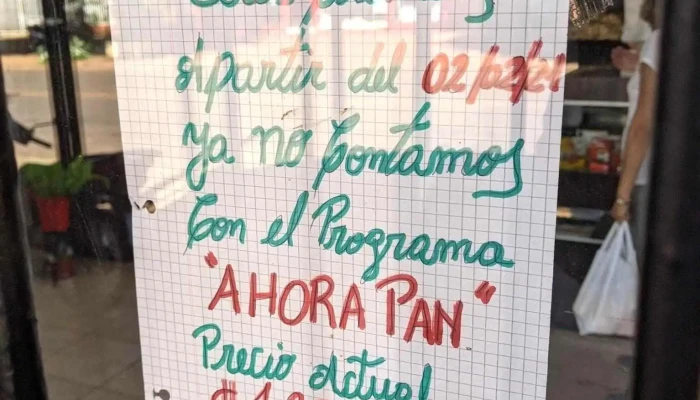 A partir del 02/02/24
Ya no Contamos
Con el Programa
"AHORA PAN"
Precio Actual